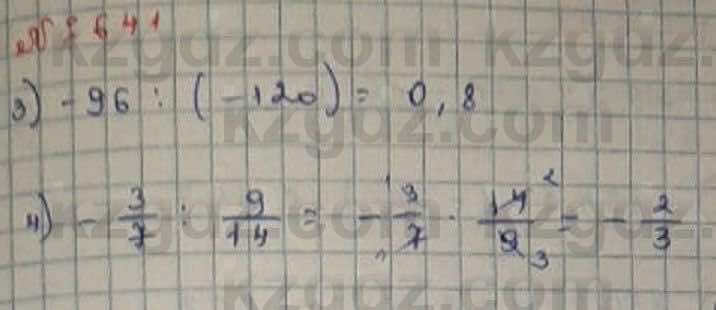 № 641
3) -96 : (-120) = 0,8
4) - 3/7 : 9/14 = - 3/7 · 14/9 = - 2/3
kzgdz.com kzgdz.com
kzgdz.com
kzgdz.com kzgdz.com
kzgdz.com